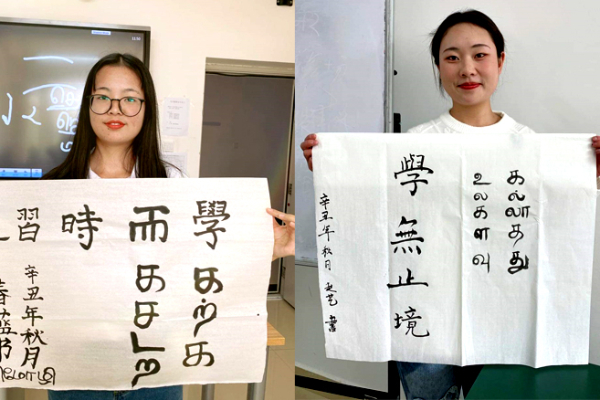 學 கற்க
而 கசடற
時
習
辛丑年秋月
கல்லாதது
உலகளவு
學無止境
辛丑年秋月
書